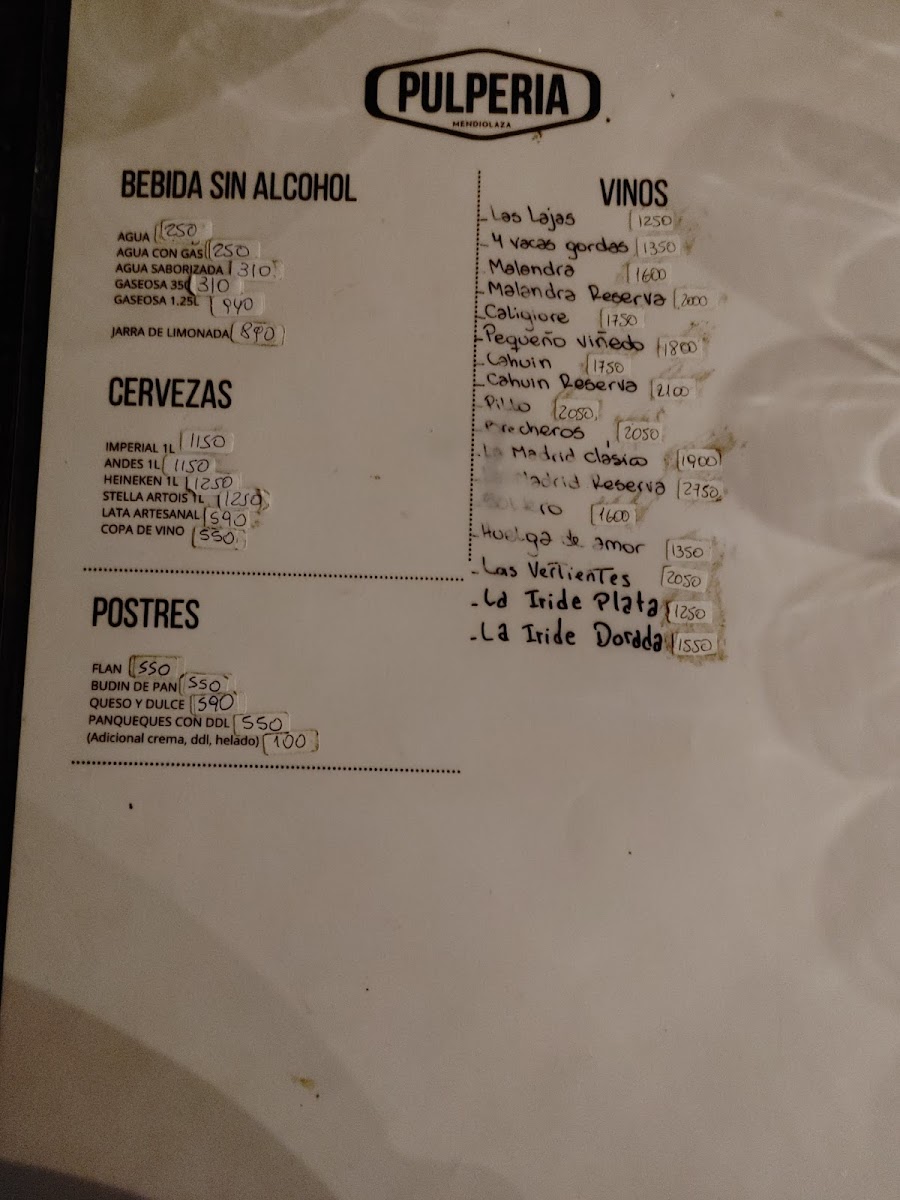 PULPERIA
MENDIOLAZA
BEBIDA SIN ALCOHOL
AGUA 250
AGUA CON GAS 250
AGUA SABORIZADA 310
GASEOSA 350 310
GASEOSA 1.25L 940
JARRA DE LIMONADA 890
CERVEZAS
IMPERIAL 1L 1150
ANDES 1L 1150
HEINEKEN 1L 1250
STELLA ARTOIS 1L 1250
LATA ARTESANAL 590
COPA DE VINO 550
POSTRES
FLAN 550
BUDIN DE PAN 550
QUESO Y DULCE 590
PANQUEQUES CON DDL 550
(Adicional crema, ddl, helado) 100
VINOS
-Las Lajas 1250
-4 vacas gordas 1350
Malandra 1600
-Malandra Reserva 2000
-Caligiore 1750
-Pequeño viñedo 1800
-Cahuin 1750
-Cahuin Reserva 2100
-Pillo 2050
2050
-La Madrid clásico 1900
Madrid Reserva 2750
1600
-Huelga de amor 1350
-Las Vertientes 2050
-La Iride Plata 1250
-La Iride Dorada 1550